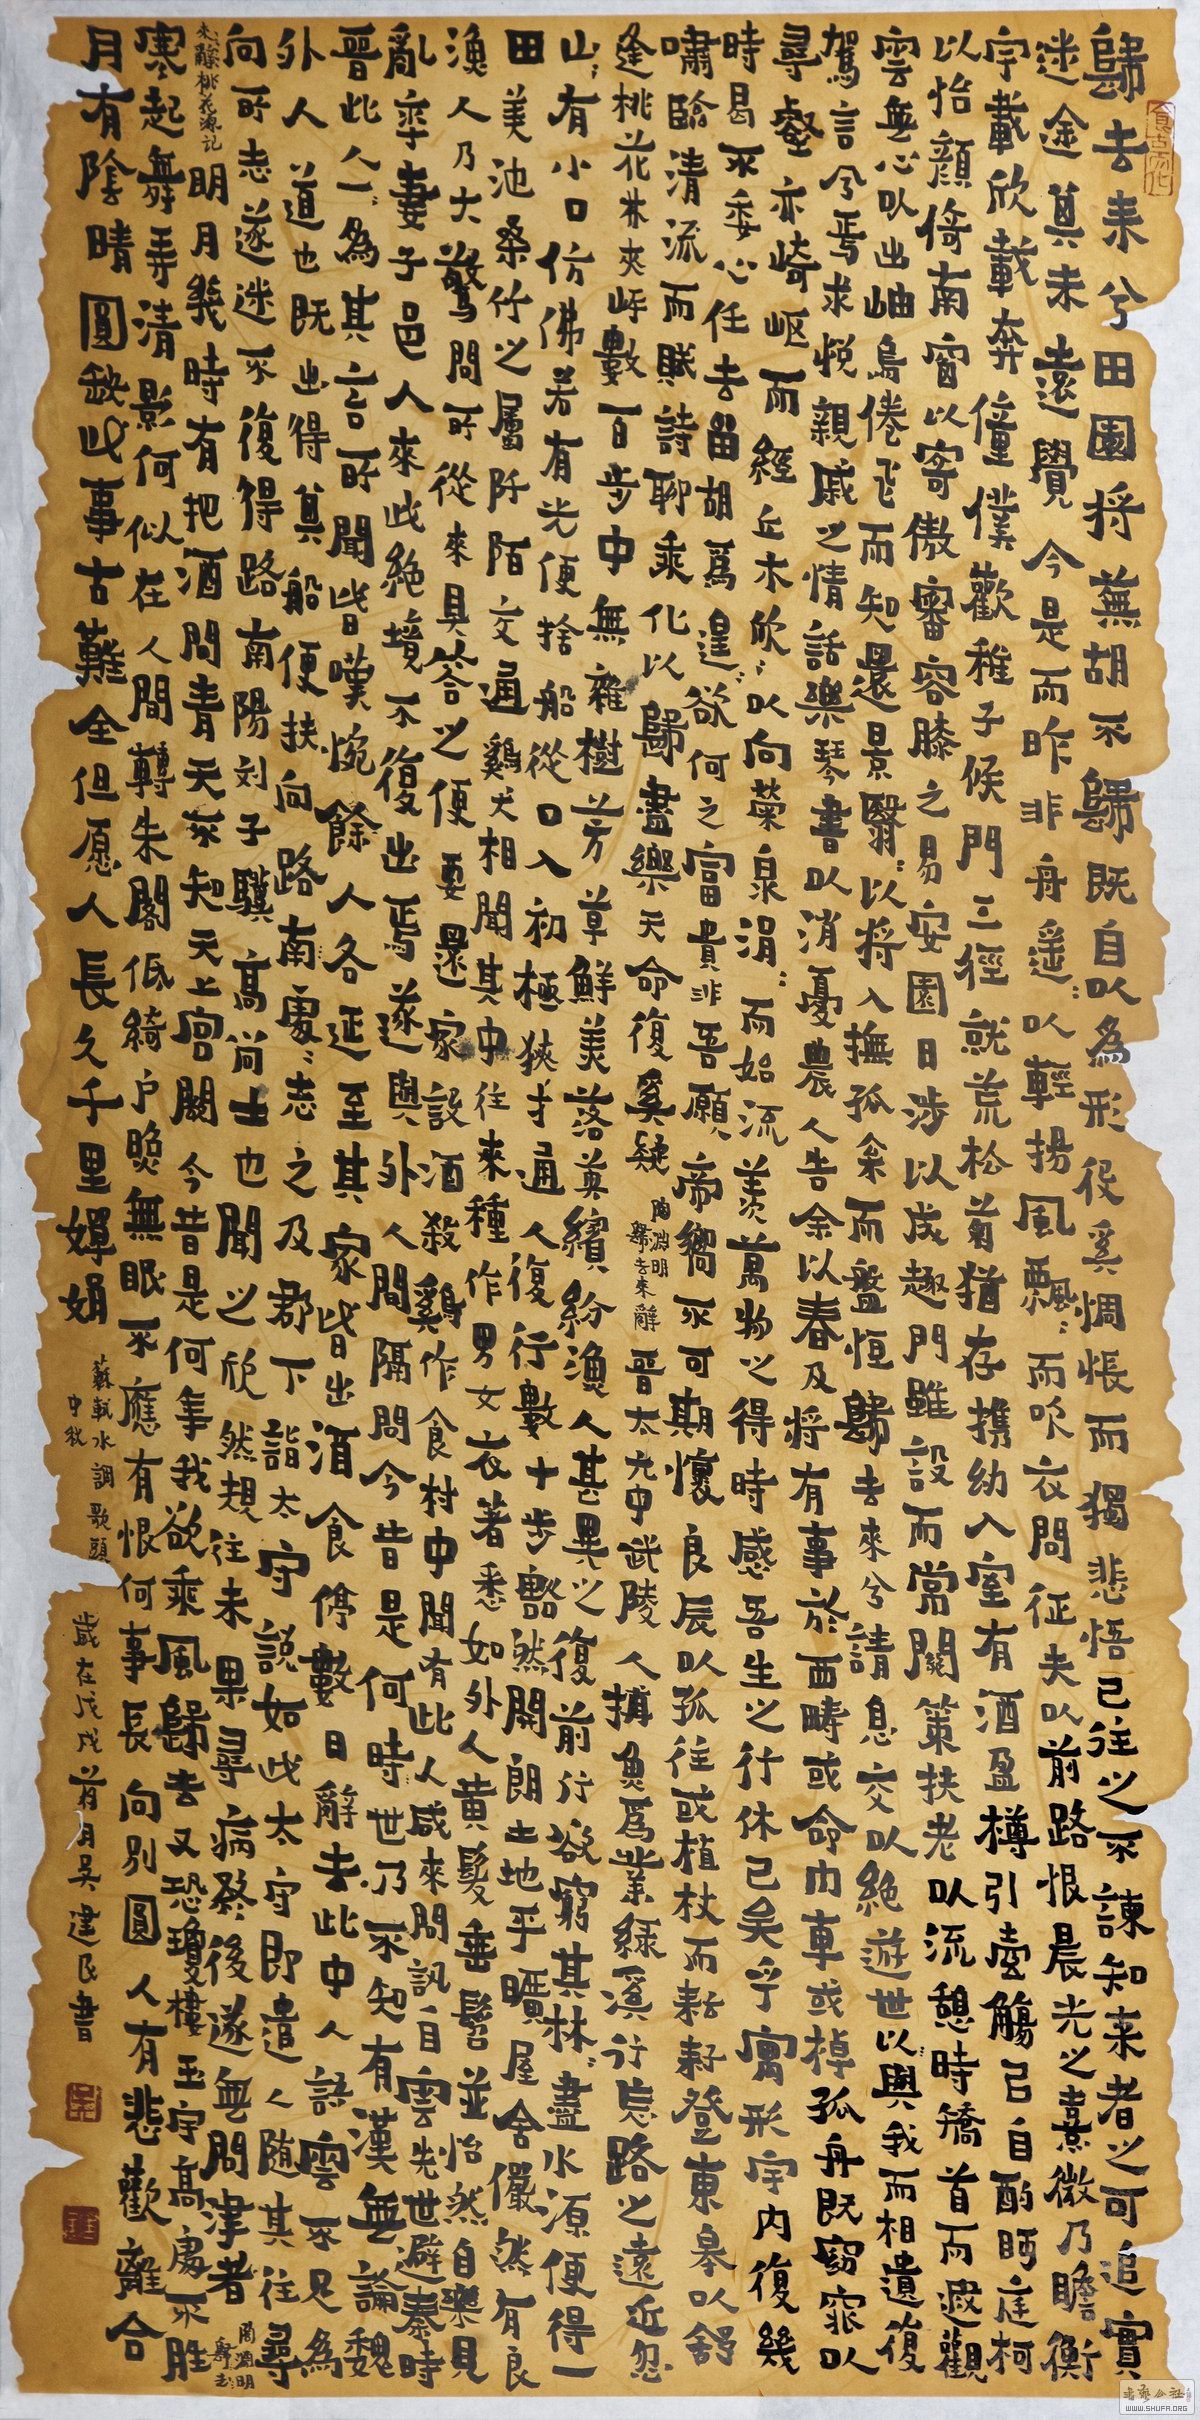 歸去来兮田園将蕪胡不歸既自以為形役奚惆悵而獨悲悟已往之不諫知来者之可追實
迷途其未遠覺今是而昨非舟遥遥以輕揚風飄飄而吹衣問征夫以前路恨晨光之熹微乃瞻衡
宇載欣載奔僮僕歡稚子候門三徑就荒松菊猶存携幼入室有酒盈樽引壺觴以自酌眄庭柯
以怡顔倚南窗以寄傲審容膝之易安園日涉以成趣門雖設而常關策扶老以流憩時矯首而遐觀
雲無心以出岫鳥倦飛而知還景翳翳以将入撫孤松而盤恒歸去來兮請息交以絶遊世以與我而相遺復
駕言兮焉求悦親戚之情話樂琴書以消憂農人告余以春及将有事於西疇或命巾車或棹孤舟既窈窕以
尋壑亦崎嶇而經丘木欣欣以向榮泉涓涓而始流羨萬物之得時感吾生之行休已矣乎寓形宇内復幾
時曷不委心任去留胡為遑遑欲何之富貴非吾願帝鄉不可期懷良辰以孤往或植杖而耘耔登東皋以舒
嘯臨清流而賦詩聊乘化以歸盡樂天命復奚疑 陶淵明歸去來辭 晋太元中武陵人捕魚為業緣溪行忘路之遠近忽
逢桃花林夾岸數百步中無雜樹芳草鮮美落英繽紛漁人甚異之復前行欲窮其林林盡水源便得一
山山有小口仿佛若有光便捨船從口入初極狹才通人復行數十步豁然開朗土地平曠屋舍儼然有良
田美池桑竹之屬阡陌交通鷄犬相聞其中往來種作男女衣著悉如外人黄髮垂髫並怡然自樂見
漁人乃大驚問所從來具答之便要還家設酒殺鷄作食村中聞有此人咸來問訊自雲先世避秦時
亂率妻子邑人來此絶境不復出焉遂與外人間隔問今昔是何時世乃不知有漢無論魏
晋此人一一為其言所聞皆嘆惋餘人各延至其家皆出酒食停數日辭去此中人語雲不足為
外人道也既出得其船便扶向路南處處志之及郡下詣太守説如此太守即遣人随其往尋
向所志遂迷不復得路南陽刘子驥高尚士也聞之欣然規往未果尋病終後遂無問津者 陶淵明歸去
來辭桃花源記 明月幾時有把酒問青天不知天上宫闕今昔是何年我欲乘風歸去又恐瓊樓玉宇高處不胜
寒起舞弄清影何似在人間轉朱閣低綺户照無眠不應有恨何事長向别圓人有悲歡離合
月有陰晴圓缺此事古難全但愿人長久千里嬋娟 蘇軾水調歌頭中秋 歲在戊戌首月吴建民書
WWW.SHUFA.ORG